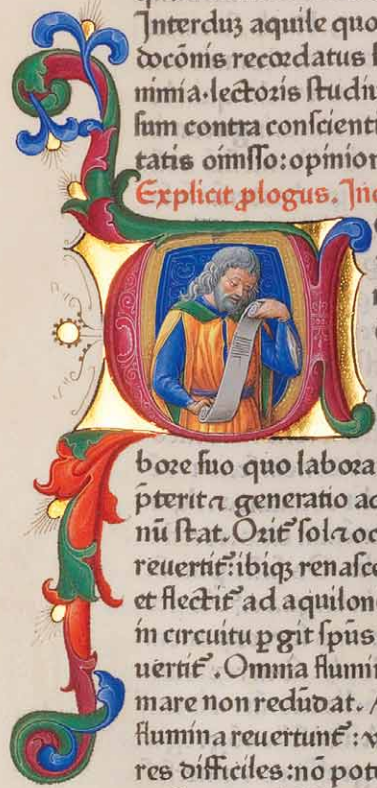 Interduz aquile quo
docōnis recordatus
nimia·lectoris studiu
sum contra conscienti
tatis omisso: opinion
Explicit plogus. Inc
U
bore suo quo labora
p̄terit ⁊ generatio ad
nū stat. Orit᷑ sol ⁊ oc
reuertit᷑: ibiqꝫ renasce
et flectit᷑ ad aquilone
in circuitu ꝑgit spūs
uertit᷑. Omnia flumi
mare non redūdat.
flumina reuertunt᷑:
res difficiles: nō pot